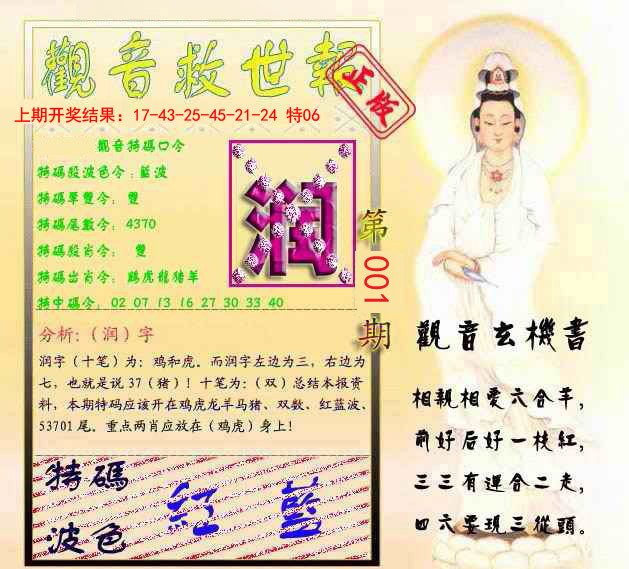 觀音救世報
正版
上期开奖结果：17-43-25-45-21-24 特06
觀音特碼口令
特碼段波色令：藍波
特碼單雙令： 雙
特碼尾數令：4370
特碼段肖令： 雙
特碼出肖令：鷄虎龍猪羊
特中碼令：02 07 13 16 27 30 33 40
润
第001期
分析:（润）字
润字（十笔）为：鸡和虎。而润字左边为三，右边为
七，也就是说 37（猪）！十笔为:（双）总结本报资
料，本期特码应该开在鸡虎龙羊马猪、双数、红蓝波、
53701 尾。重点两肖应放在（鸡虎）身上！
特碼
波色
紅 藍
觀音玄機書
相親相愛六合羊，
前好后好一枝紅，
三三有運合二走，
四六要現三從頭。